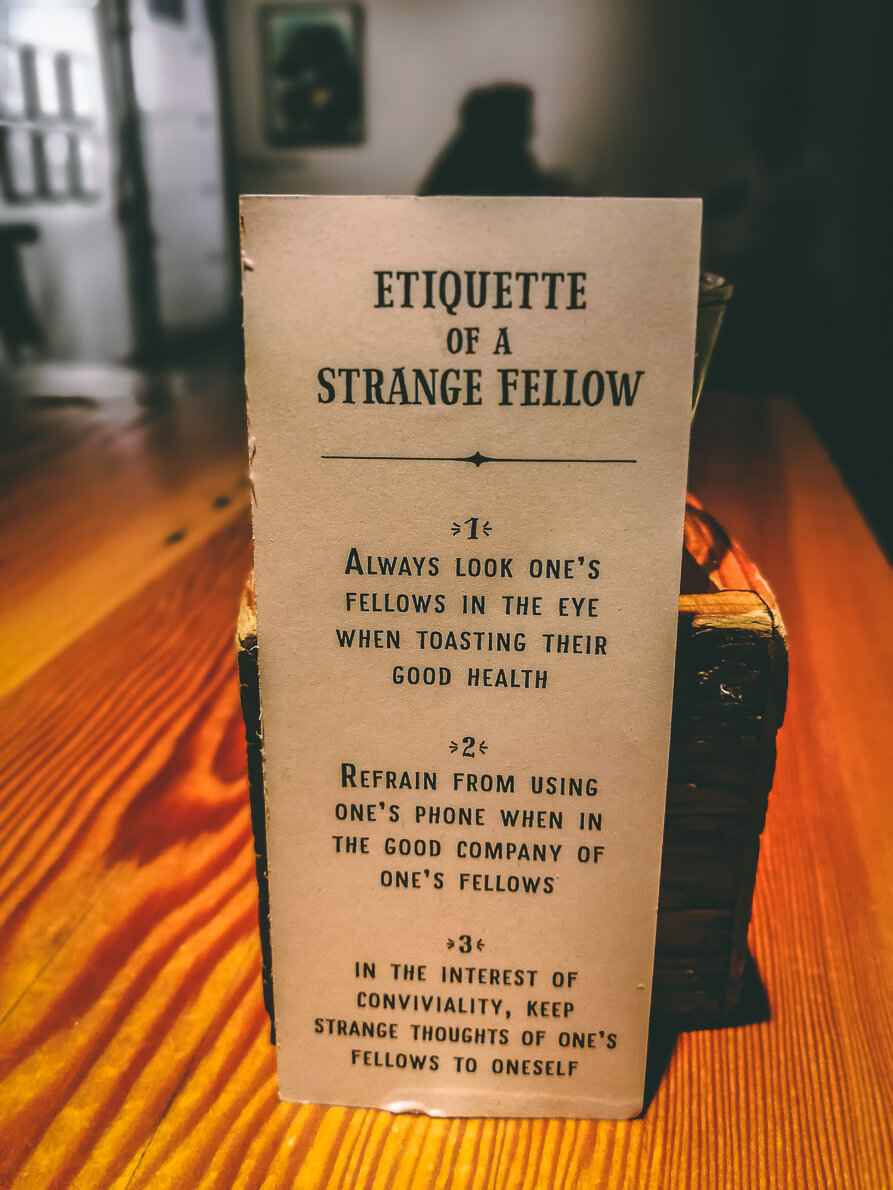 ETIQUETTE
OF A
STRANGE FELLOW
1
ALWAYS LOOK ONE'S
FELLOWS IN THE EYE
WHEN TOASTING THEIR
GOOD HEALTH
2
REFRAIN FROM USING
ONE'S PHONE WHEN IN
THE GOOD COMPANY OF
ONE'S FELLOWS
3
IN THE INTEREST OF
CONVIVIALITY, KEEP
STRANGE THOUGHTS OF ONE'S
FELLOWS TO ONESELF